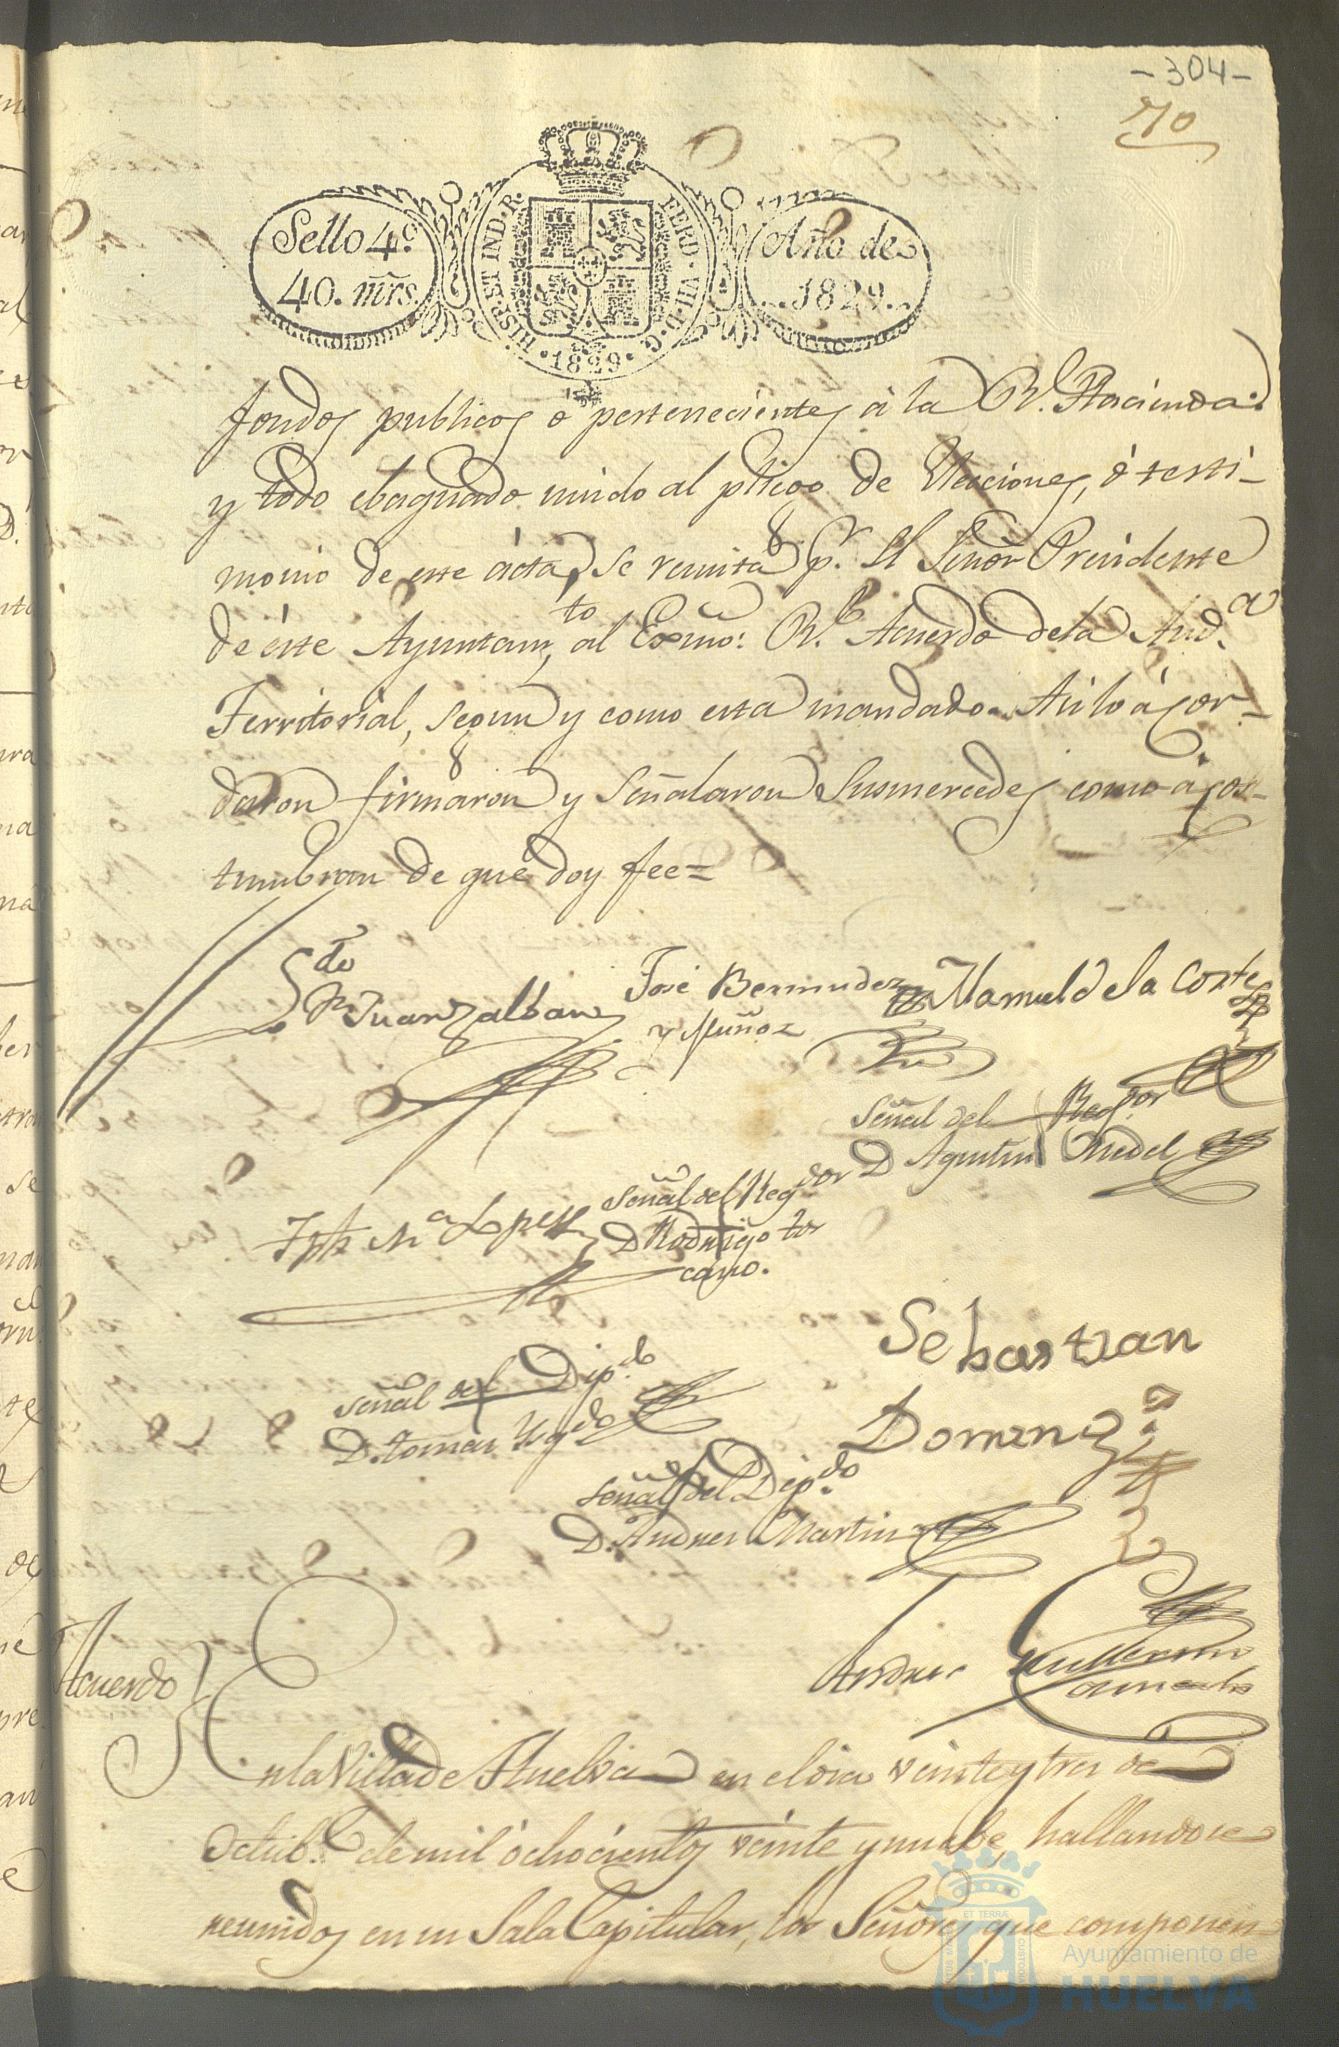 -304-
70
Sello 4º
40. mrs.
HISP. ET IND. R. FERD. VII. D. G. 1829.
Año de
1829.
fondos publicos o pertenecientes á la Rl. Hacienda:
y todo evaguado unido al pliego de Elecciones, ó testi-
monio de este ácta, se remita pr. El Señor Presidente
de éste Ayuntamto, al Exmo: Rl. Acuerdo dela Auda.
Territorial, segun y como esta mandado. Asi lo ácor-
daron firmaron y señalaron Susmercedes como ácos-
tumbran de que doy fee=
Juan José Bermudez Manuel de la Corte
y Muñoz
Señal del Regor
D Agustin Medel
Mª Lopez Señal del Regdor
D Rodrigo tos
cano.
Sebastian
Señal del Dipdo
D. Tomas
Doming
Señal del Dipdo
D. Andres Martin
Andres Guillermo
Acuerdo
En la Villa de Huelva en el dia veinte y tres de
Octube. de mil óchocientos veinte y nuebe, hallandose
reunidos en su Sala Capitular, los Señores que componen
ET TERRAE CUSTODIA
Ayuntamiento de
HUELVA